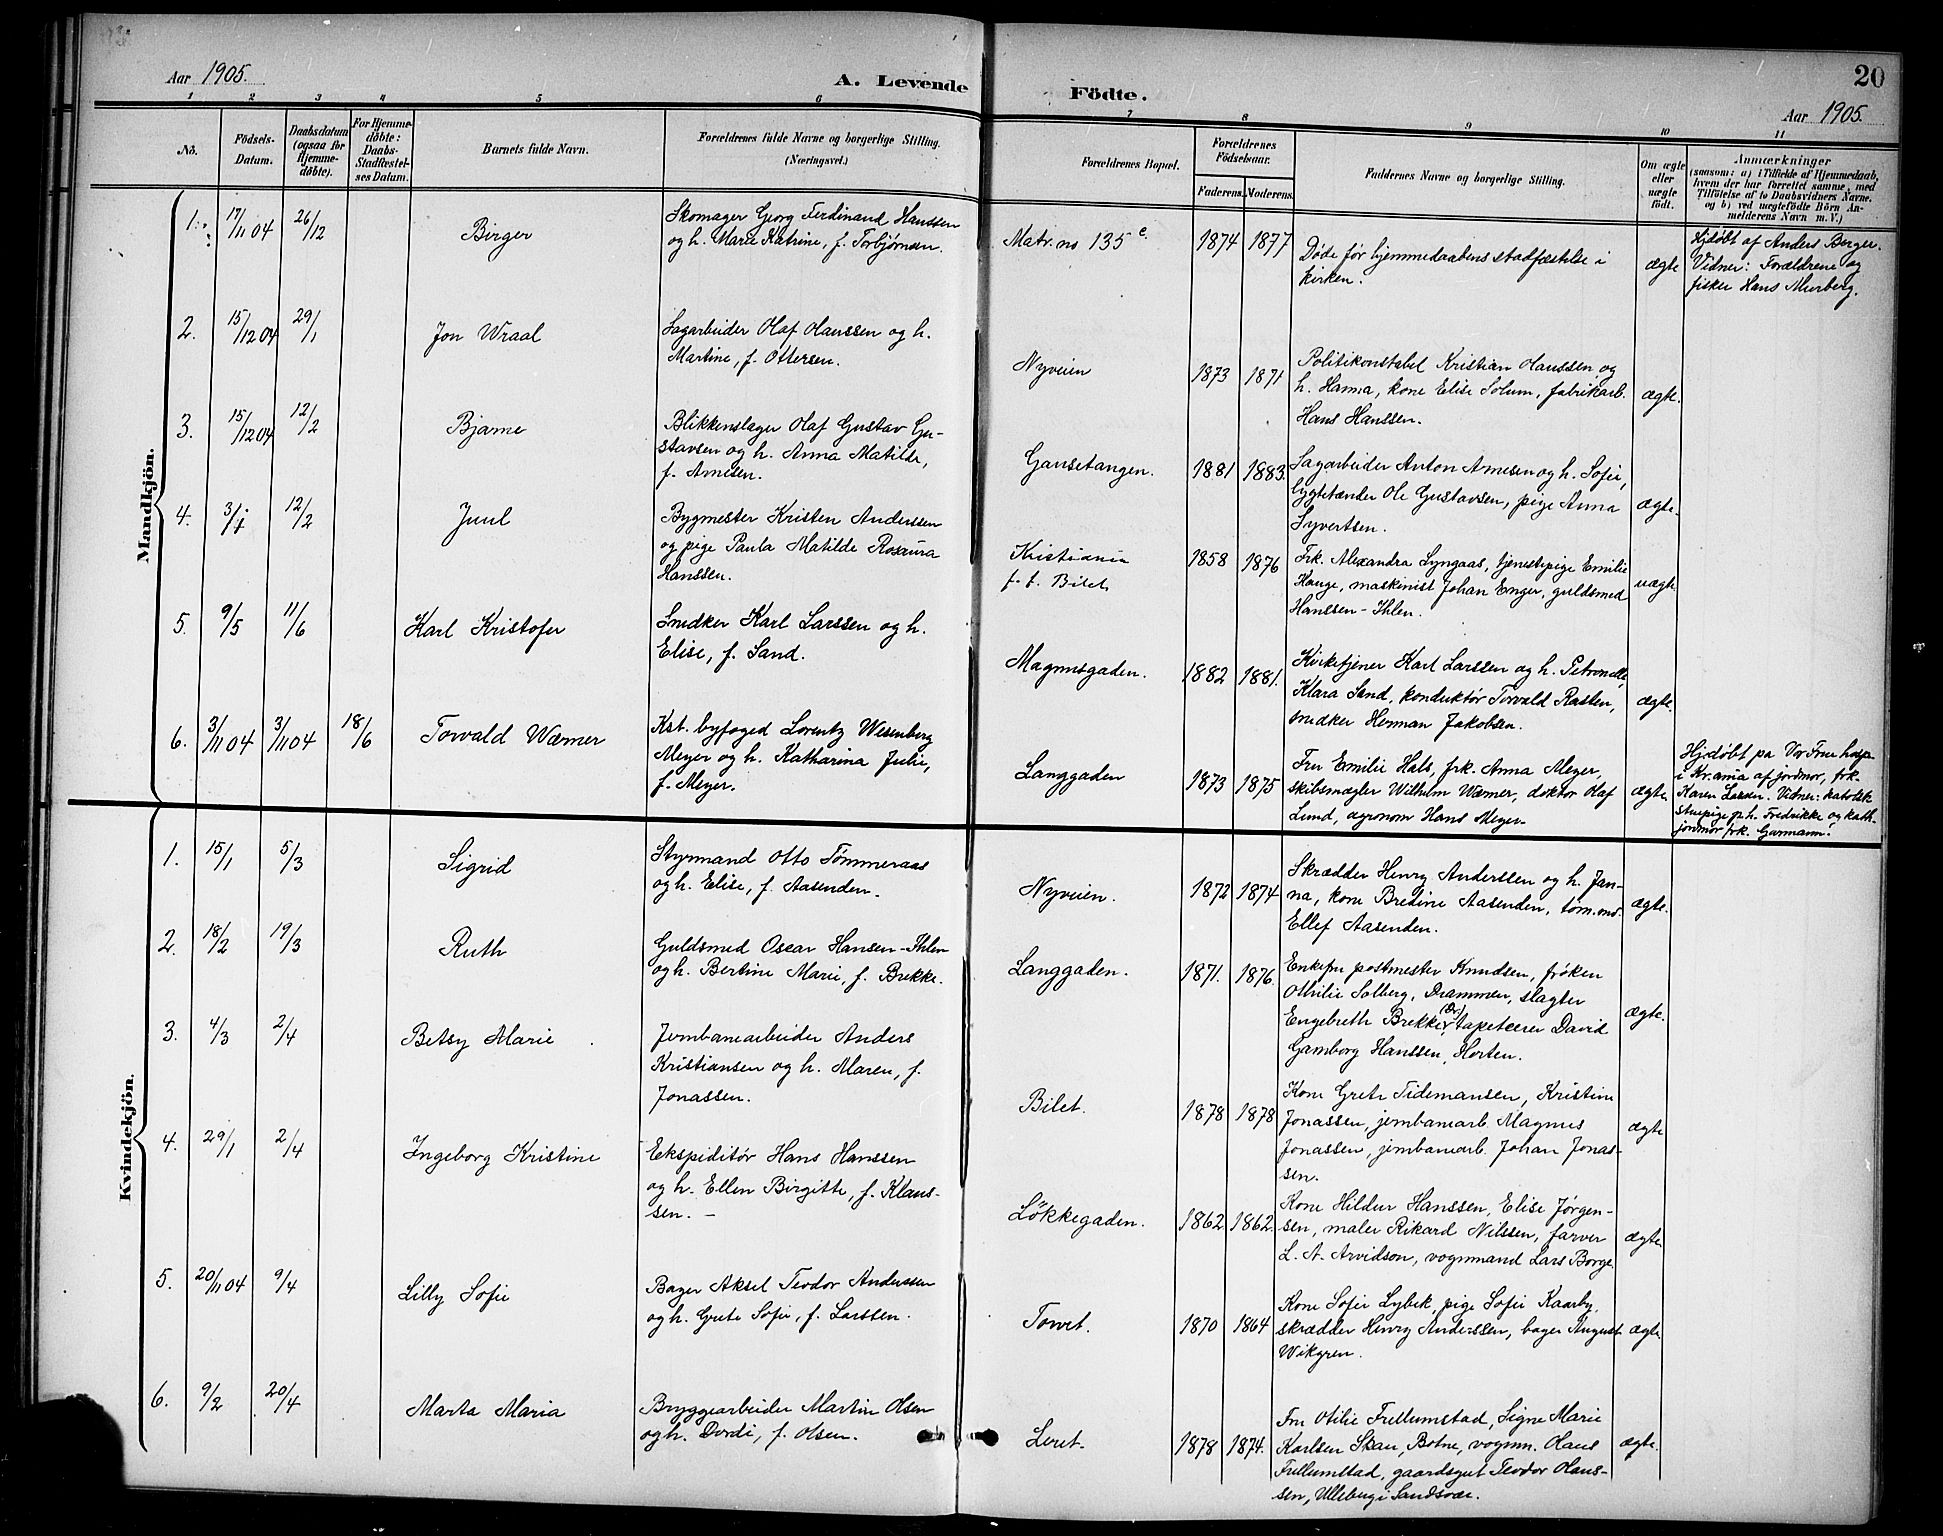 Aar 1905.
A. Levende
Födte.
20
Aar 1905.
1 2 3 4 5 6 7 8 9 10 11
No.
Födsels-
Datum.
Daabsdatum
(ogsaa for
Hjemme-
döbte).
For Hjemme-
döbte:
Daabs-
Stadfæstel-
ses Datum.
Barnets fulde Navn.
Forældrenes fulde Navne og borgerlige Stilling.
(Næringsvei.)
Forældrenes Bopæl.
Forældrenes
Födselsaar.
Faderens. Moderens.
Faddernes Navne og borgerlige Stilling.
Om ægte
eller
uægte
födt.
Anmærkninger
(saasom: a) i Tilfælde af Hjemmedaab,
hvem der har forrettet samme, med
Tilföielse af to Daabsvidners Navne,
og b) ved uægtefödte Börn An-
melderens Navn m. V.)
Mandkjön.
1. 17/11 04 26/12 Birger
Skomager Georg Ferdinand Hanssen
og h. Marie Katrine, f. Torbjørnsen.
Matr. no 135 c. 1874 1877
Døde før hjemmedaabens stadfæstelse i
kirken.
ægte
Hjdøbt af Anders Berger.
Vidner: Forældrene og
fisker Hans Murberg.
2. 15/12 04 29/1 Jon Wraal
Sagarbeider Olaf Hanssen og h.
Martine, f. Ottersen.
Nyveien 1873 1871
Politikonstabel Kristian Hanssen og
h. Hanna, kone Elise Solum, fabrikarb.
Hans Hanssen.
ægte.
3. 15/12 04 12/2 Bjarne
Blikkenslager Olaf Gustav Gu-
stavsen og h. Anna Matilde,
f. Arnesen.
Gausetangen. 1881 1883.
Sagarbeider Anton Arnesen og h. Sofie,
lygtetænder Ole Gustavsen, pige Anna
Syvertsen.
ægte.
4. 3/1 12/2 Juul
Bygmester Kristen Anderssen
og pige Paula Matilde Rosaura
Hanssen.
Kristiania
f. t. Bilet 1858 1876
Frk. Alexandra Lyngaas, tjenestepige Emilie
Hauge, maskinist Johan Enger, guldsmed
Hanssen-Ihlen.
uægte.
5. 9/5 11/6 Karl Kristofer
Snedker Karl Larssen og h.
Elise, f. Sand.
Magnusgaden. 1882 1881.
Kirketjener Karl Larssen og h. Petronelle,
Klara Sand, konduktør Torvald Rasten,
snedker Herman Jakobsen.
ægte.
6. 3/11 04 3/11 04 18/6 Torvald Wærner
Kst. byfoged Lorentz Wesenberg
Meyer og h. Katharina Julie,
f. Meyer.
Langgaden 1873 1875
Fru Emilie Hals, frk. Anna Meyer,
skibsmægler Wilhelm Wærner, doktor Olaf
Lund, agronom Hans Meyer.
ægte.
Hjdøbt pa Vor Frue hosp.
i Kr.ania af jordmor, frk.
Karen Larsen. Vidner: katolsk
stuepige p. h. Fredrikke og kath.
jordmor frk. Garmann.
Kvindekjön.
1. 15/1 5/3 Sigrid
Styrmand Otto Tømmeraas
og h. Elise, f. Aasenden.
Nyveien. 1872 1874
Skrædder Henry Anderssen og h. Jan-
na, kone Bredine Aasenden, tom.md.
Ellef Aasenden.
ægte.
2. 18/2 19/3 Ruth
Guldsmed Oscar Hansen-Ihlen
og h. Bertine Marie, f. Brekke.
Langgaden. 1871. 1876.
Enkefru postmester Knudsen, frøken
Othilie Solberg, Drammen, slagter
Engebreth Brekke, (Dr.) tapetserer David
Gamborg Hanssen, Horten.
ægte.
3. 4/3 2/4 Betsy Marie
Jernbanearbeider Anders
Kristiansen og h. Maren, f.
Jonassen.
Bilet. 1878 1878
Kone Grete Tidemansen, Kristine
Jonassen, jernbanearb. Magnus
Jonassen, jernbanearb. Johan Jonas-
sen.
ægte
4. 29/1 2/4 Ingeborg Kristine
Ekspeditør Hans Hanssen
og h. Ellen Birgitte, f. Klaus-
sen. -
Løkkegaden. 1862 1862.
Kone Hildur Hanssen, Elise Jørgen-
sen, maler Rikard Nilssen, farver
L. A. Arvidson, vognmand Lars Borge.
ægte.
5. 20/11 04 9/4 Lilly Sofie
Bager Aksel Teodor Anderssen
og h. Grete Sofie, f. Larssen.
Torvet. 1870 1864
Kone Sofie Lybek, pige Sofie Kaarby,
skrædder Henry Anderssen, bager August
Wikgren.
ægte.
6. 9/2 20/4 Marta Maria
Bryggearbeider Martin Olsen
og h. Dordi, f. Olsen.
Leret. 1878 1874.
Fru Otilie Frellumstad, Signe Marie
Karlsen Skau, Botne, vognm. Hans
Frellumstad, gaardsgut Teodor Hans-
sen, Ulleberg i Sandsvær.
ægte.